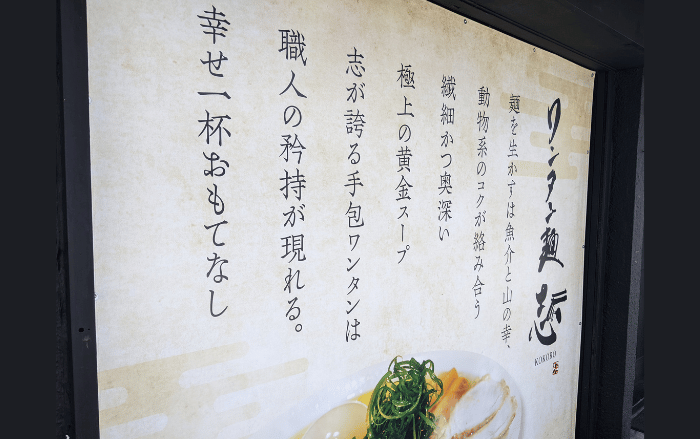 ワンタン麺 志
KOKORO
麺を生かすは魚介と山の幸、
動物系のコクが絡み合う
繊細かつ奥深い
極上の黄金スープ
志が誇る手包ワンタンは
職人の矜持が現れる。
幸せ一杯おもてなし